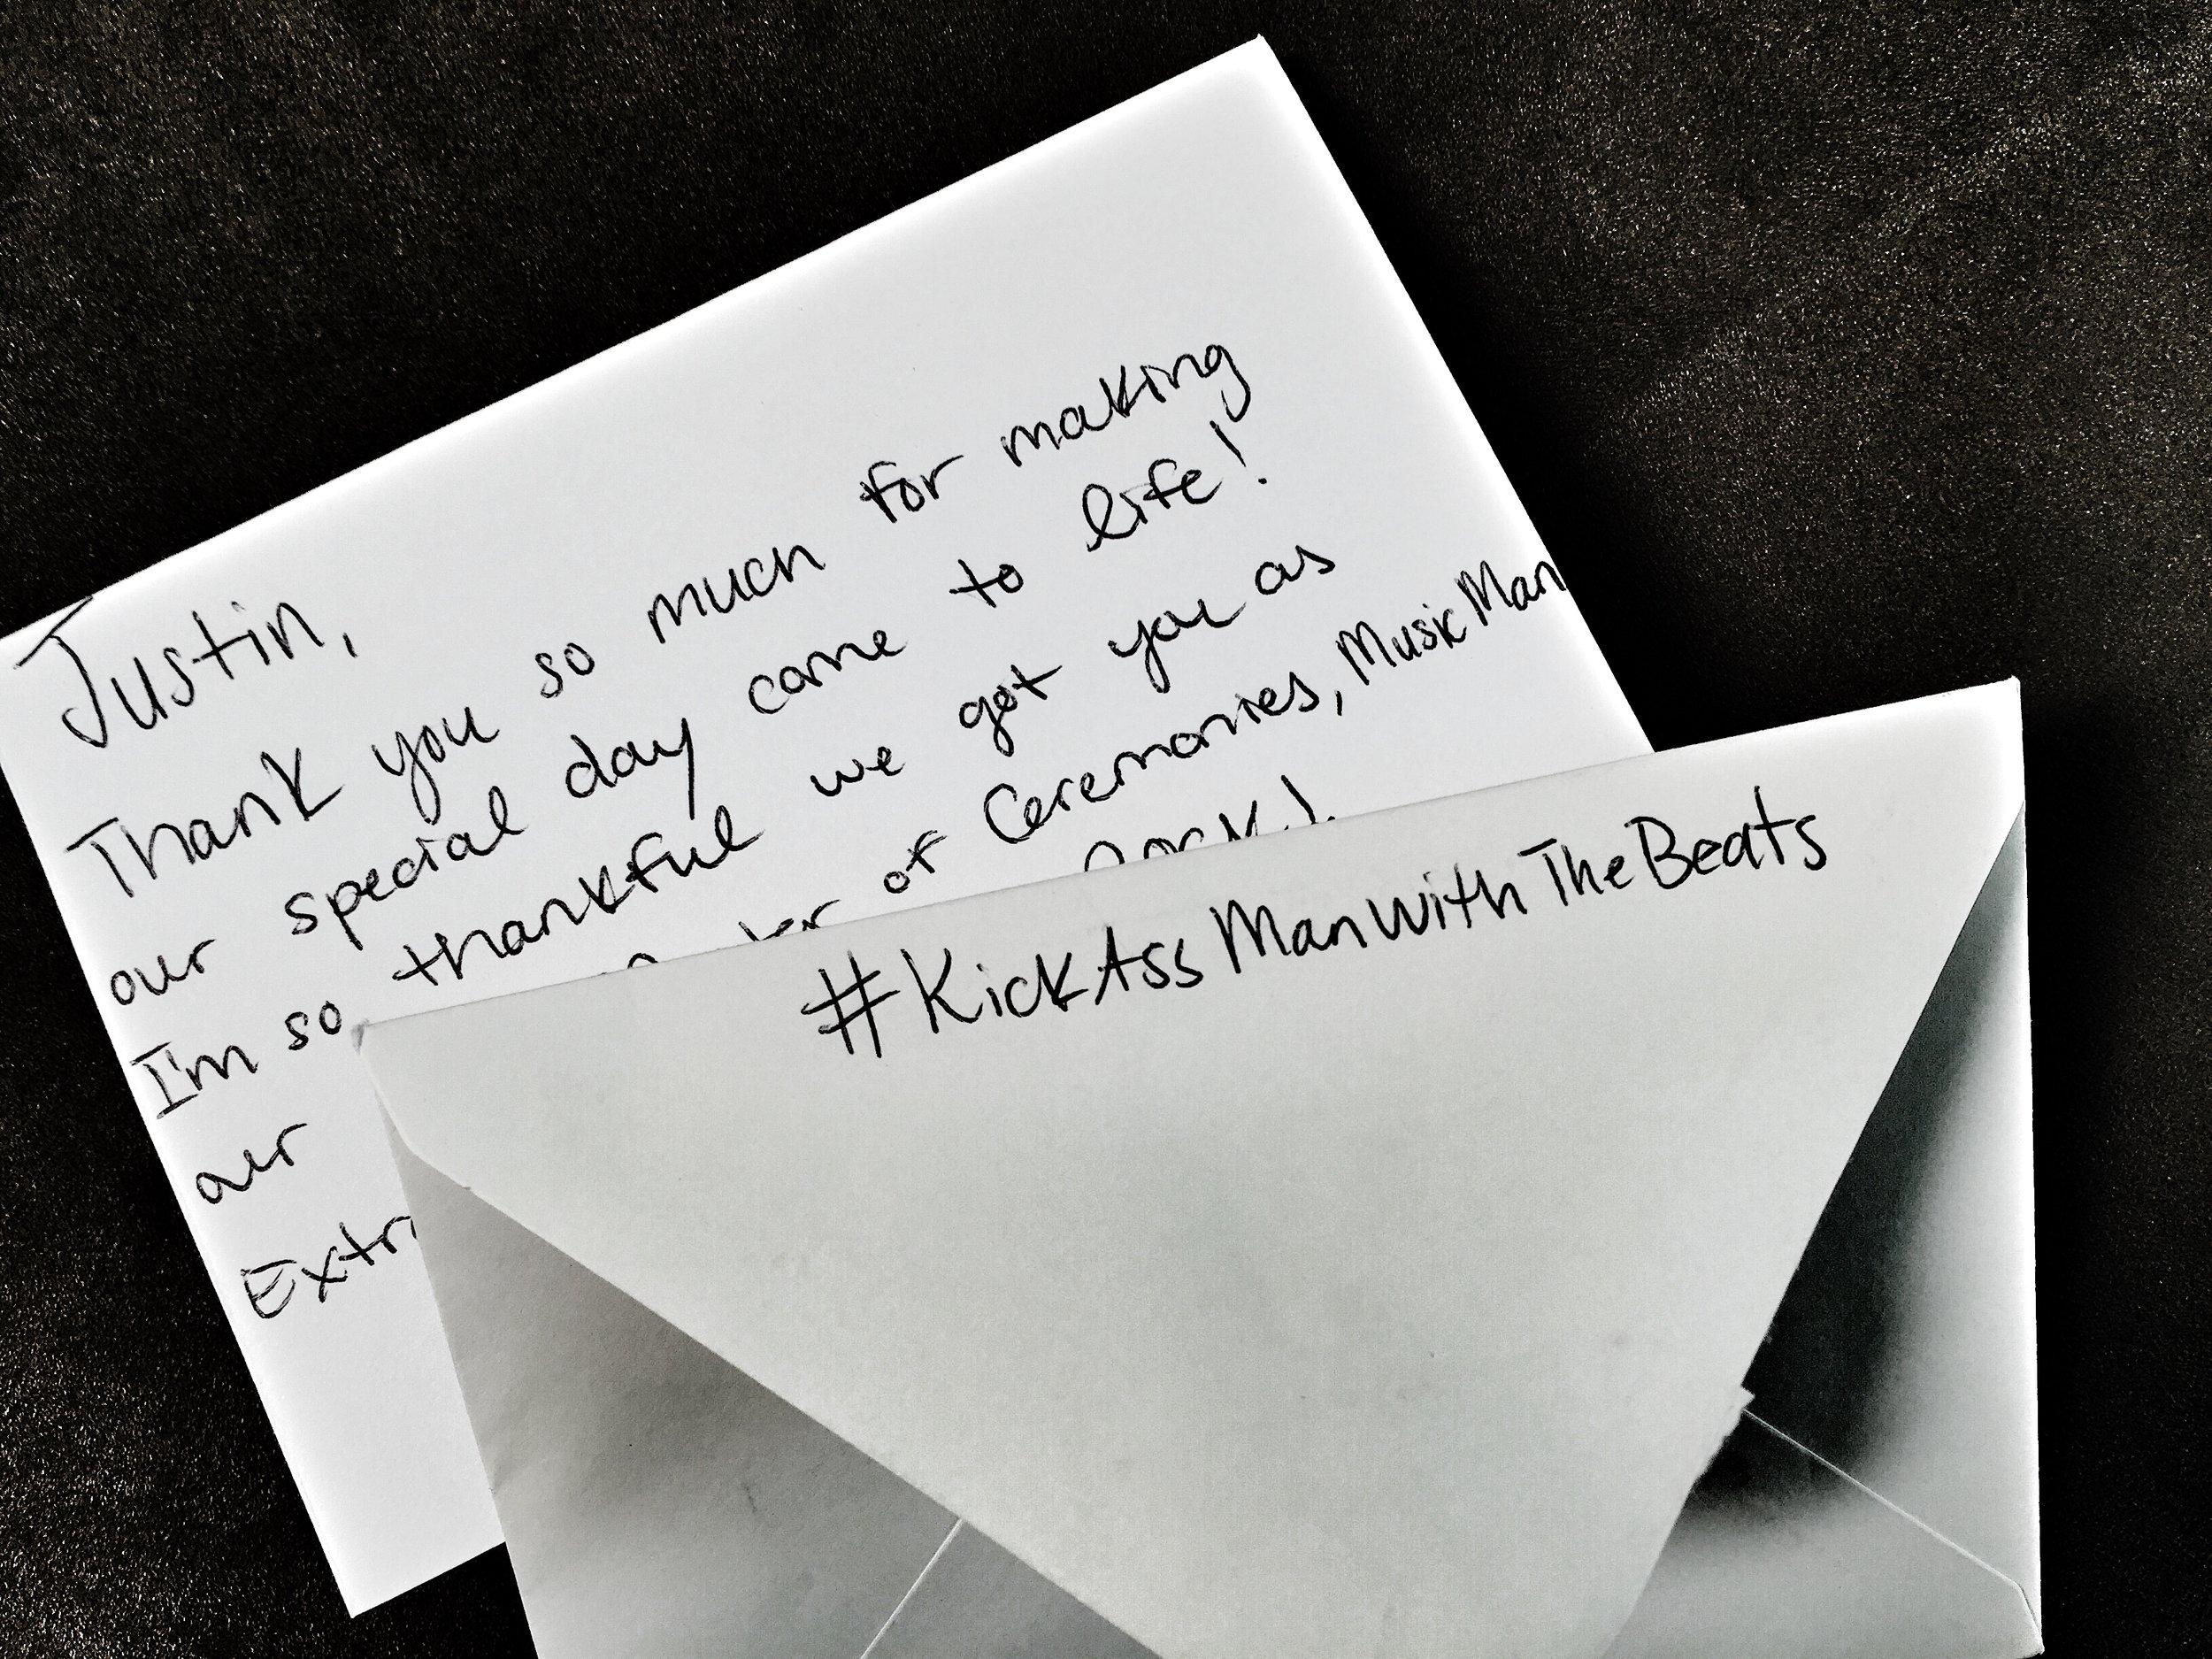 Justin,
Thank you so much for making
our special day come to life!
I'm so thankful we got you as
our of Ceremonies, Music Man
#KickAssManWithTheBeats